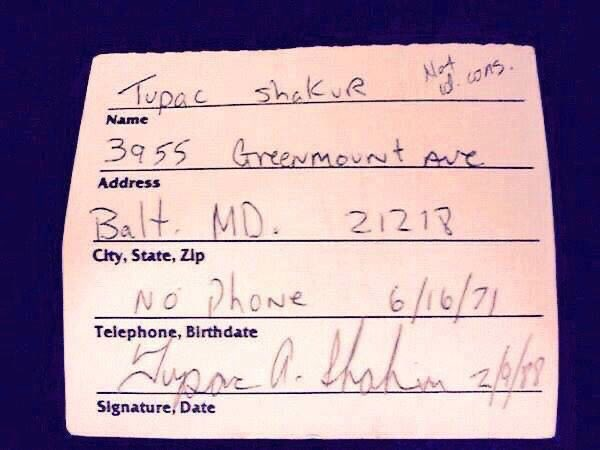 Tupac Shakur
Name
3955 Greenmount Ave
Address
Balt. MD. 21218
City, State, Zip
No Phone 6/16/71
Telephone, Birthdate
Tupac A. Shakur 2/9/88
Signature, Date